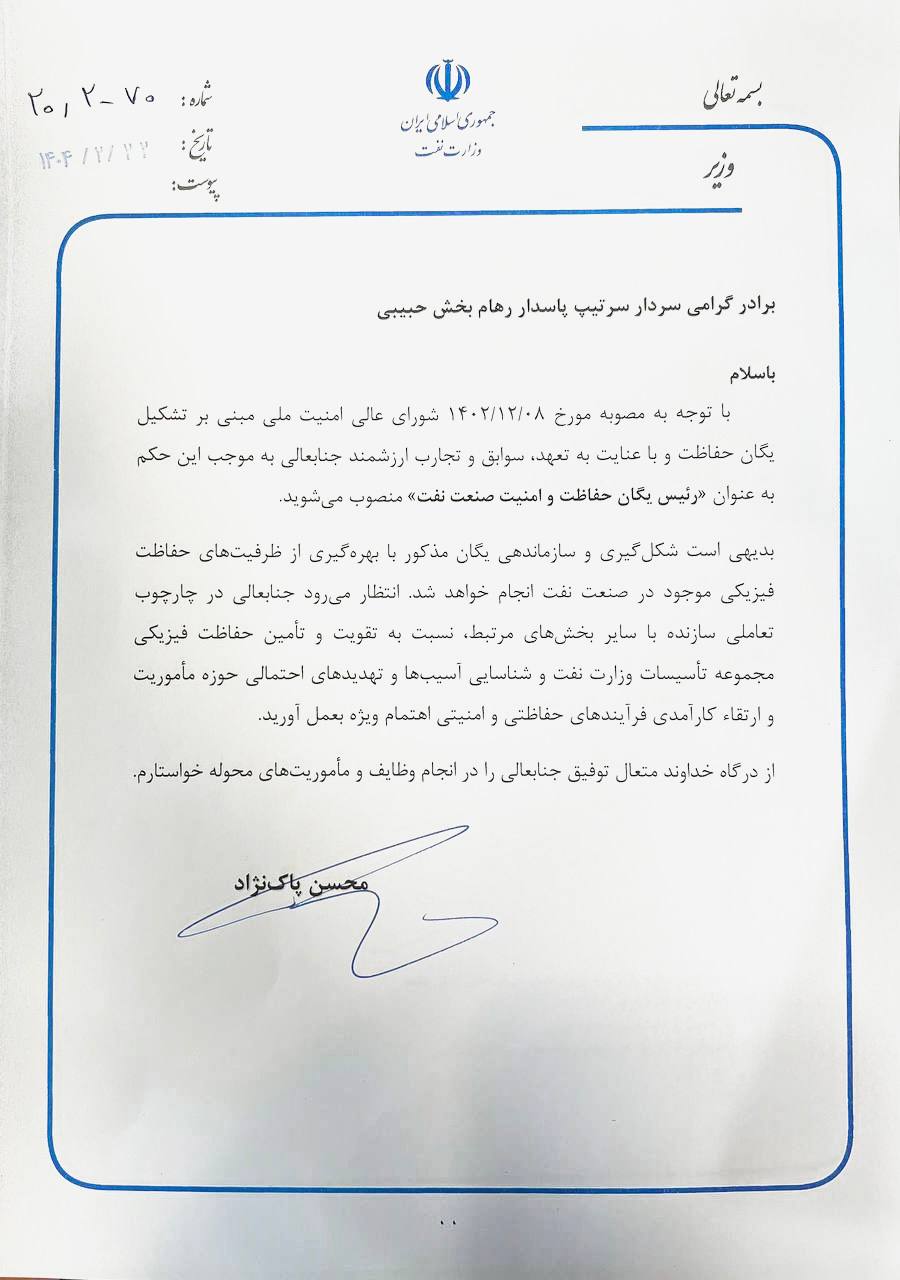 بسمه تعالی
جمهوری اسلامی ایران
وزارت نفت
وزیر
شماره : ۲۰/۲-۷۰
تاریخ : ۱۴۰۴/۲/۲۲
پیوست:
برادر گرامی سردار سرتیپ پاسدار رهام بخش حبیبی
باسلام
با توجه به مصوبه مورخ ۱۴۰۲/۱۲/۰۸ شورای عالی امنیت ملی مبنی بر تشکیل
یگان حفاظت و با عنایت به تعهد، سوابق و تجارب ارزشمند جنابعالی به موجب این حکم
به عنوان «رئیس یگان حفاظت و امنیت صنعت نفت» منصوب می‌شوید.
بدیهی است شکل‌گیری و سازماندهی یگان مذکور با بهره‌گیری از ظرفیت‌های حفاظت
فیزیکی موجود در صنعت نفت انجام خواهد شد. انتظار می‌رود جنابعالی در چارچوب
تعاملی سازنده با سایر بخش‌های مرتبط، نسبت به تقویت و تأمین حفاظت فیزیکی
مجموعه تأسیسات وزارت نفت و شناسایی آسیب‌ها و تهدیدهای احتمالی حوزه مأموریت
و ارتقاء کارآمدی فرآیندهای حفاظتی و امنیتی اهتمام ویژه بعمل آورید.
از درگاه خداوند متعال توفیق جنابعالی را در انجام وظایف و مأموریت‌های محوله خواستارم.
محسن پاک‌نژاد